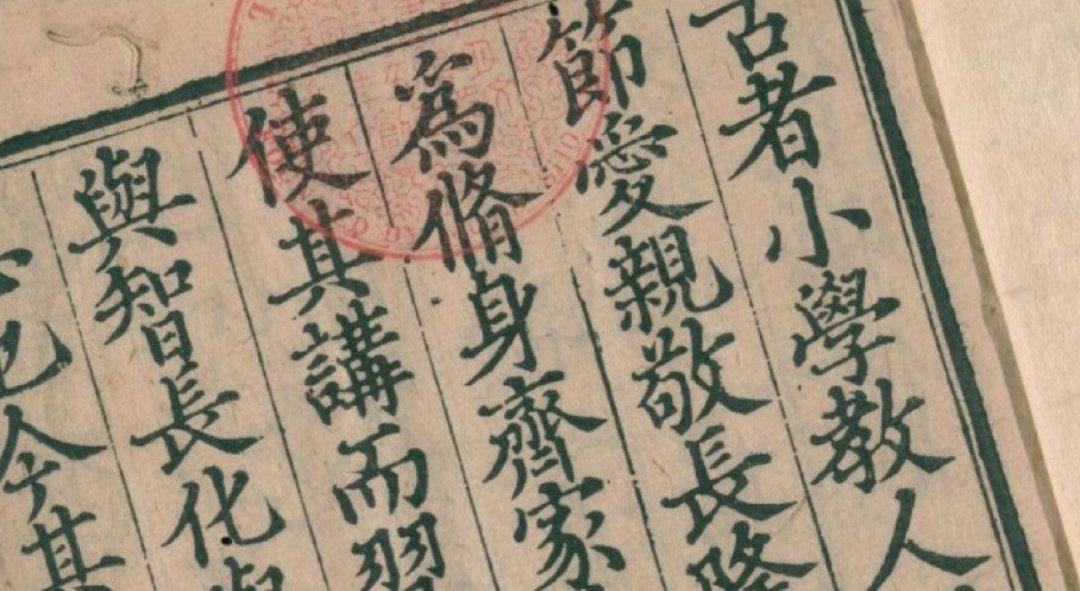 古者小學教人
節愛親敬長隆
爲脩身齊家
使其講而習
與智長化與
心也
今其